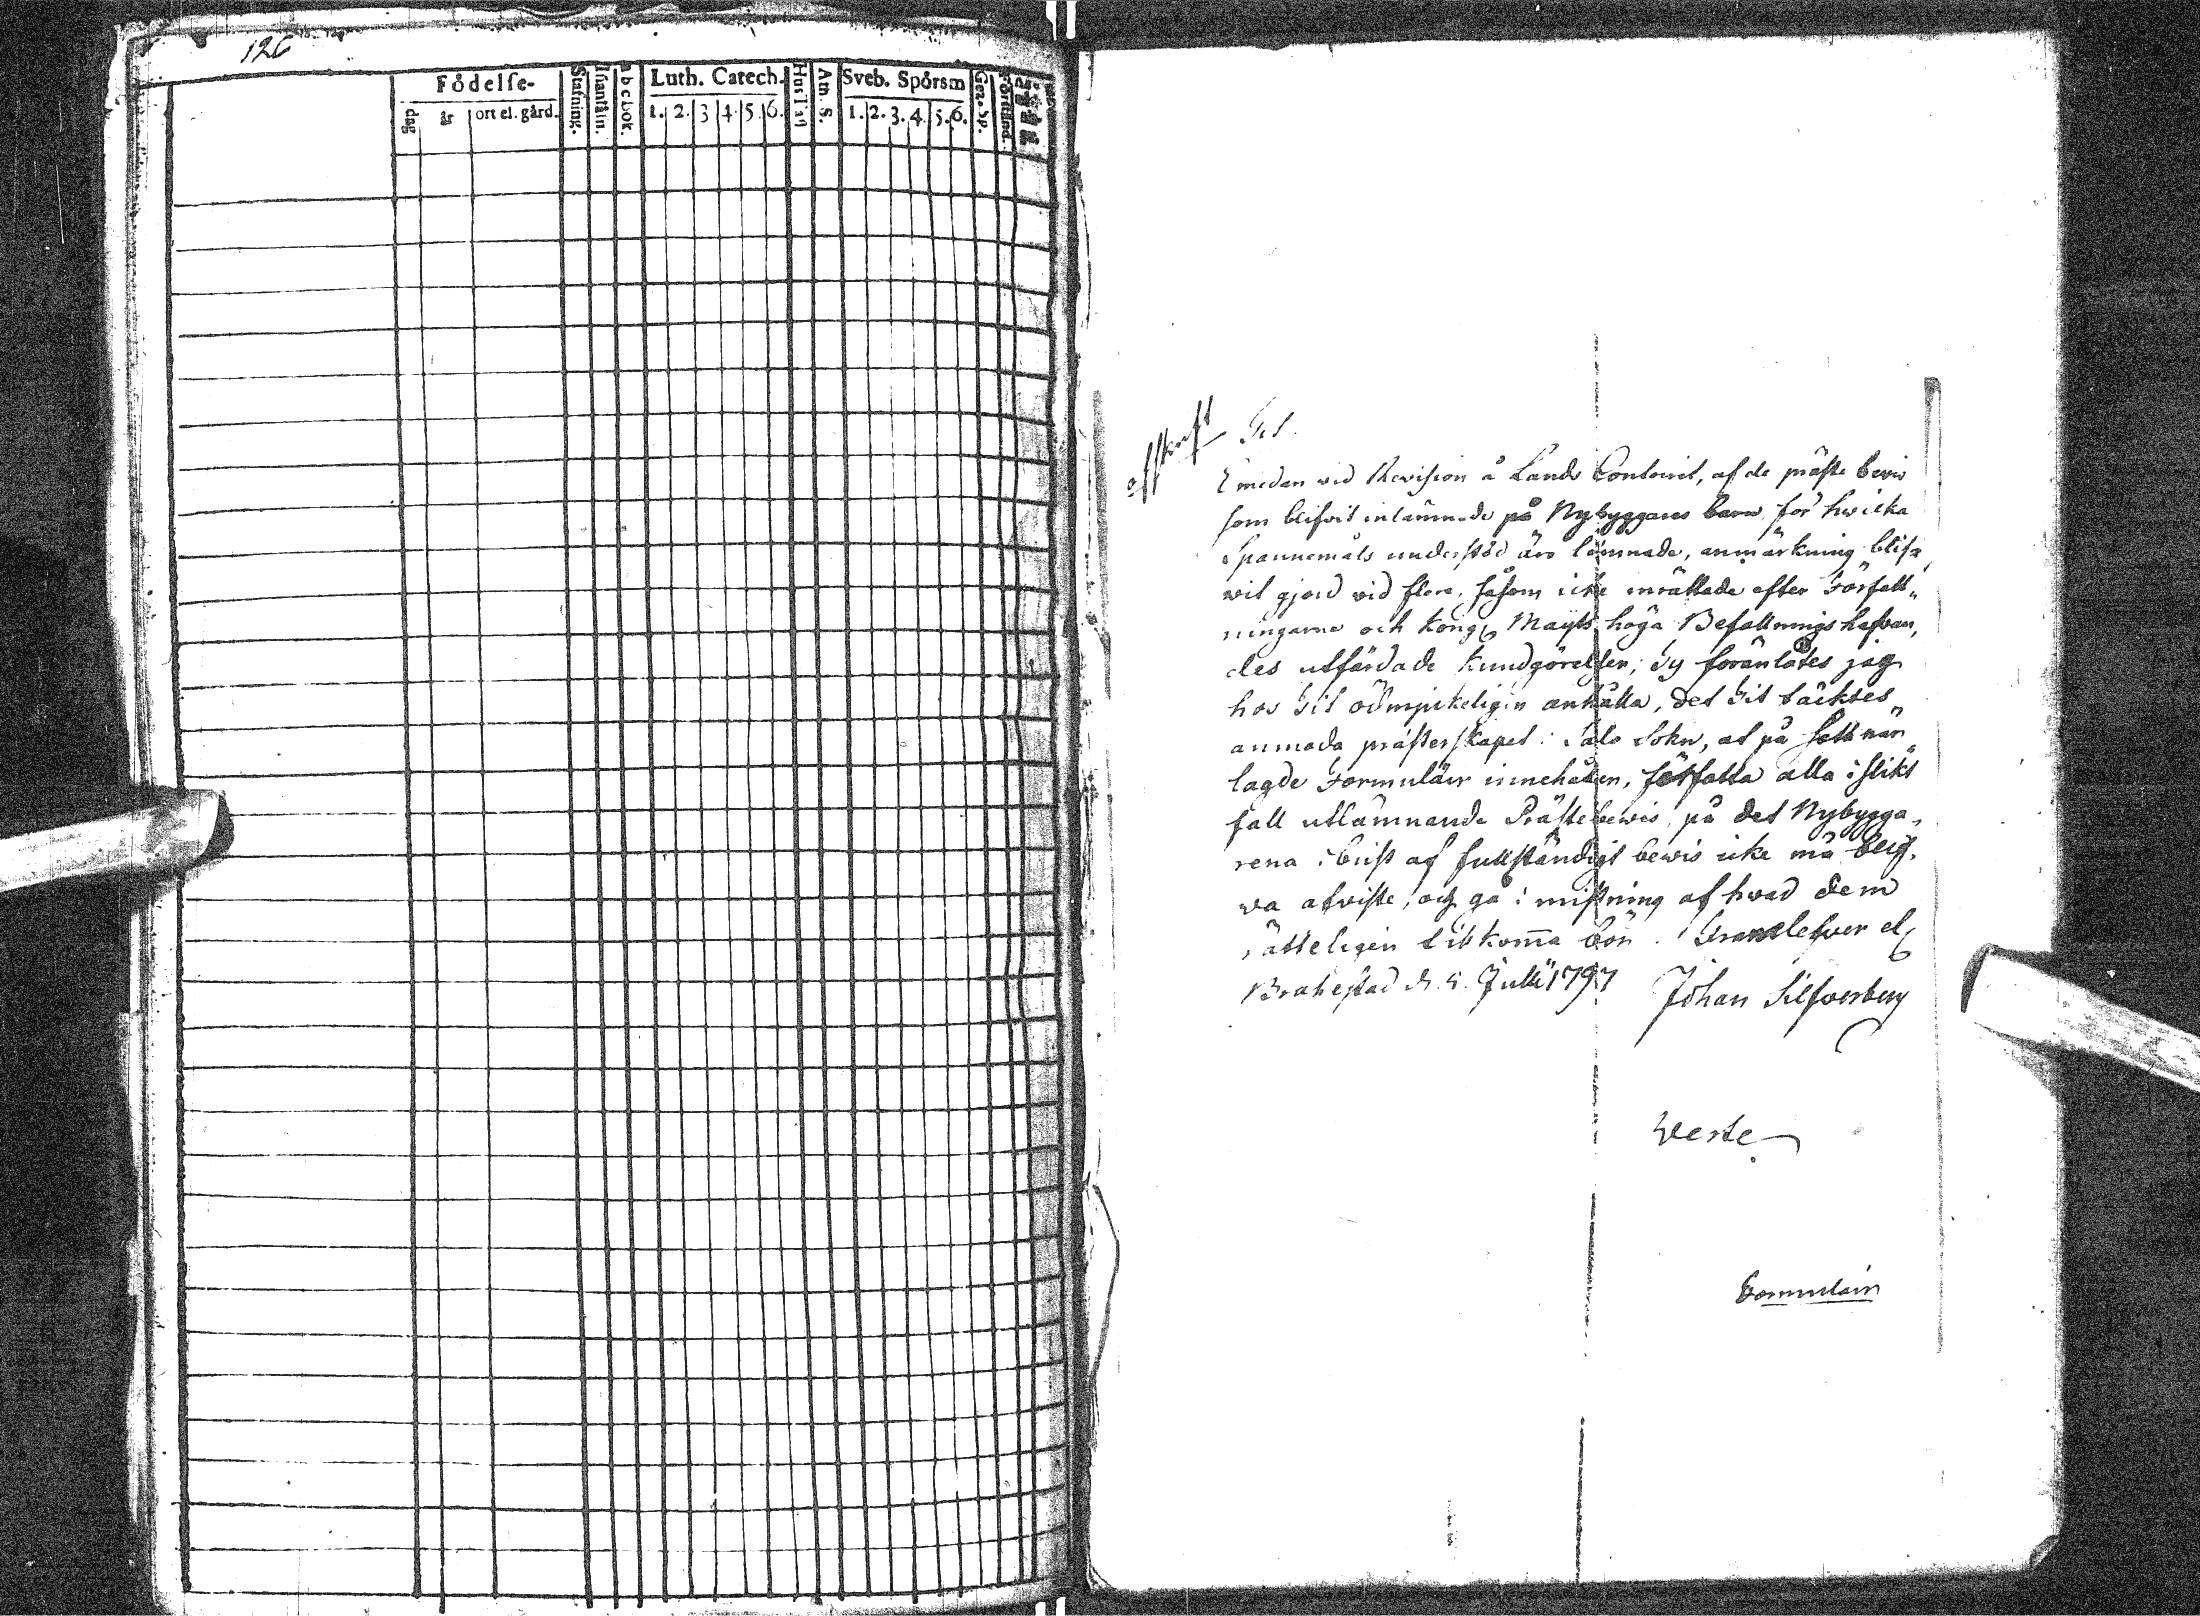 126
Födelse-
dag
år
ort el. gård.
Stafning.
Innantäln.
Abcbok.
Luth. Catech.
1. 2. 3 4 5 6.
Hus Tafl
Ath. S.
Sveb. Spörsm
1. 2. 3. 4. 5. 6.
Gez. Sp.
Förstånd.
afskrift
Emedan vid Revision å Lands Contoiret, af de präste bevis
som blifvit inlämnade på Nybyggares barn, för hwilka
Spannemåls understöd äro lämnade, anmärkning blif„
vit gjord vid flera, såsom icke inrättade efter Författ„
ningarne och Kongl Mayts höga Befallningshafvan„
des utfärdade kundgörelser; Ty föranlåtes jag
hos Tit ödmjukeligen anhålla, det Tit täcktes
anmoda prästerskapet i Salo Sokn, at på sätt när
lagde Formulair innehåller, författa alla i slikt
fall utlämnande Prästebewis, på det Nybygga„
rena i brist af fullständigt bewis icke må blif„
va afviste, och gå i mistning af hwad dem
rätteligen tillkomma bör.
Brahestad d. 5. Julii 1797
Johan Silfverberg
Verte
Formulair